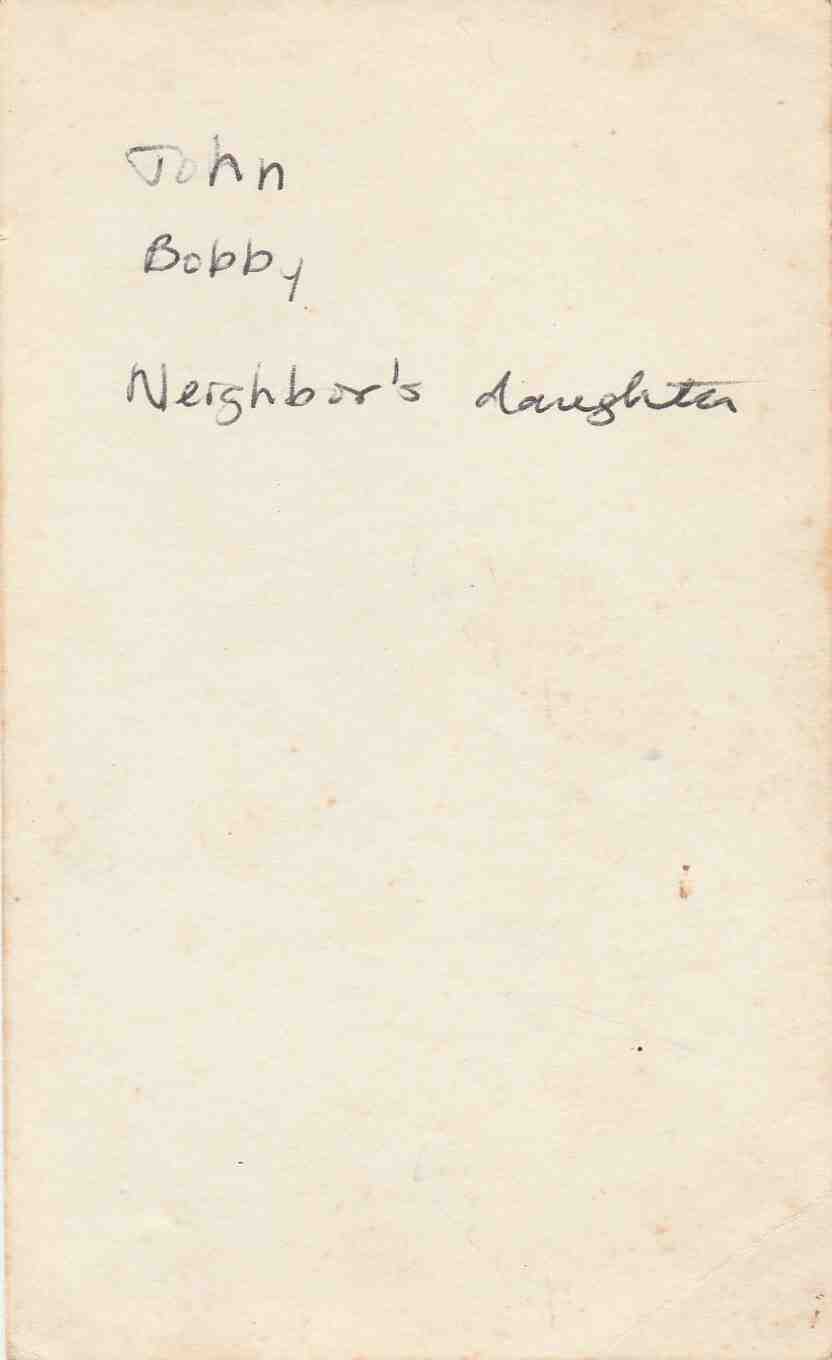 John
Bobby
Neighbor's daughter